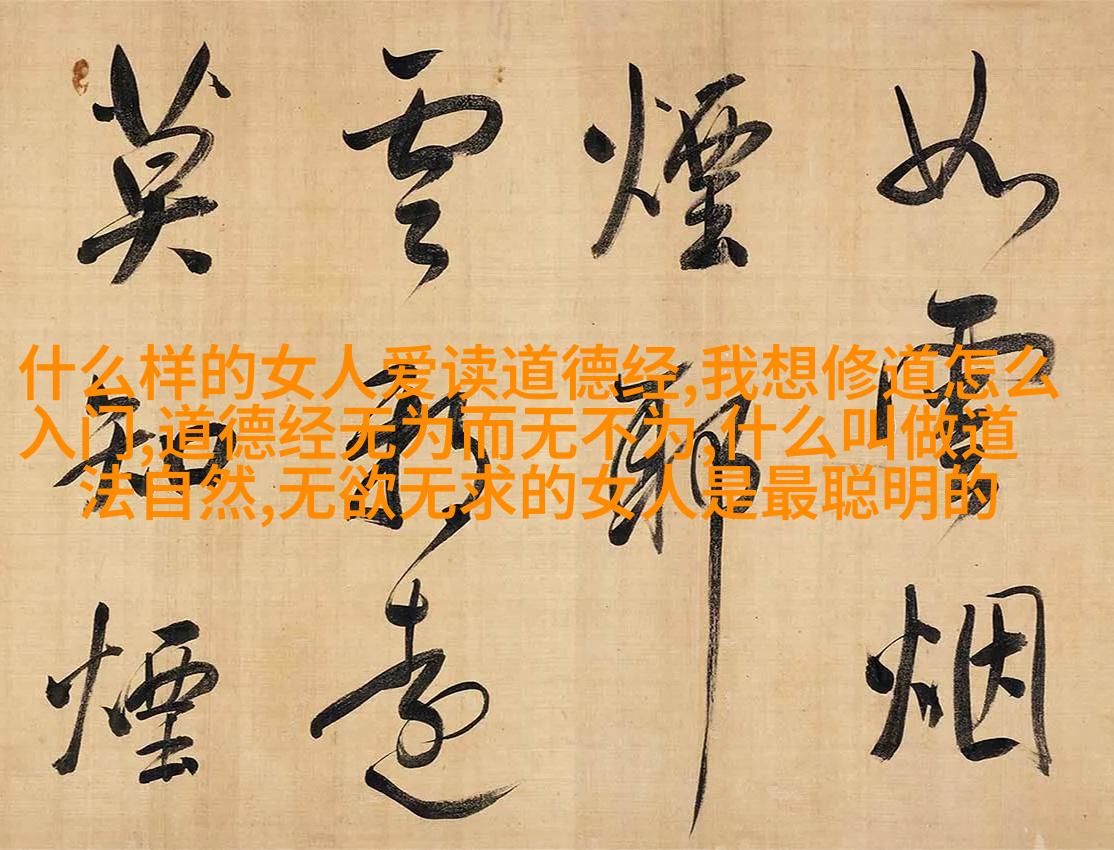 什么样的女人爱读道德经,我想修道怎么
入门,道德经无为而无不为,什么叫做道
法自然,无欲无求的女人是最聪明的
如雲烟
煙
雲遠
莫煙